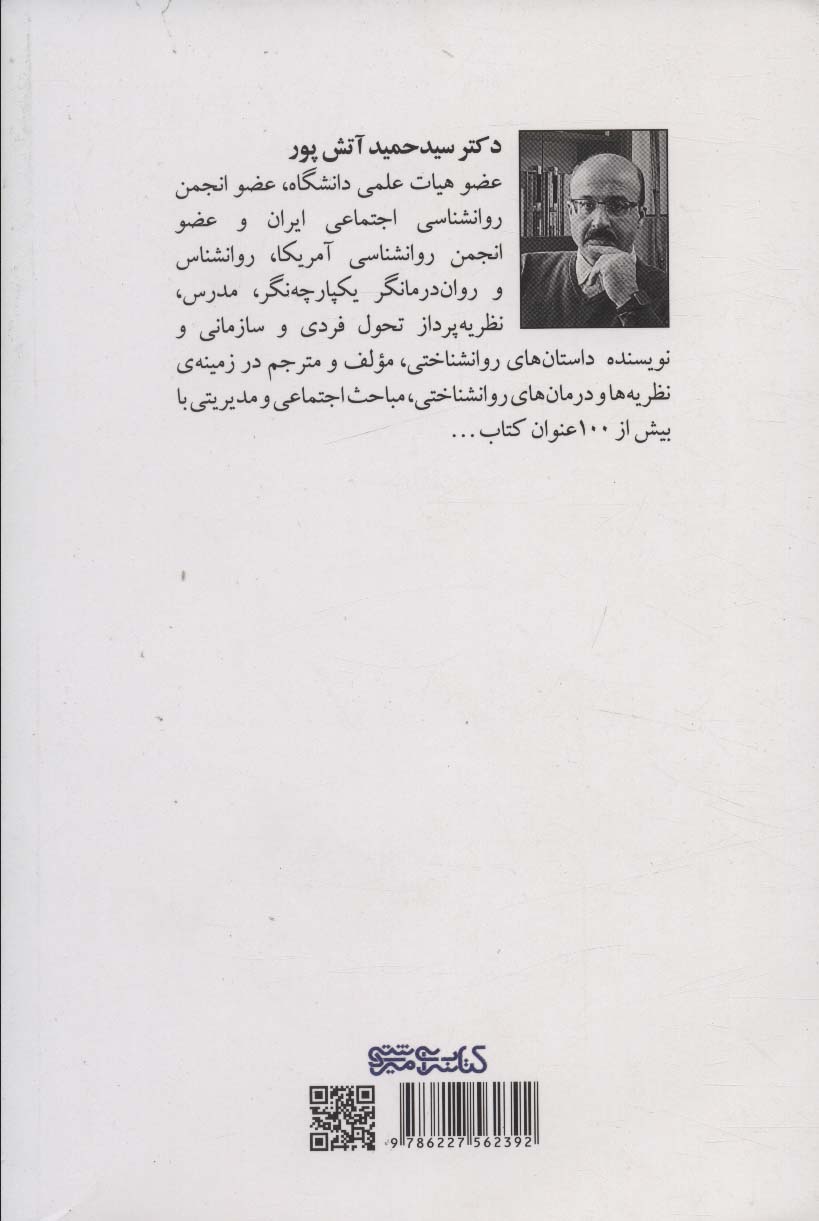 دکتر سیدحمید آتش پور
عضو هیات علمی دانشگاه، عضو انجمن
روانشناسی اجتماعی ایران و عضو
انجمن روانشناسی آمریکا، روانشناس
و روان‌درمانگر یکپارچه‌نگر، مدرس،
نظریه‌پرداز تحول فردی و سازمانی و
نویسنده داستان‌های روانشناختی، مؤلف و مترجم در زمینه‌ی
نظریه‌ها و درمان‌های روانشناختی، مباحث اجتماعی و مدیریتی با
بیش از ۱۰۰عنوان کتاب ...
کتابسرای میردشتی
9 786227 562392